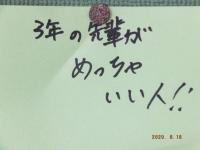 3年の先輩が
めっちゃ
いい人!!
2020. 6.18